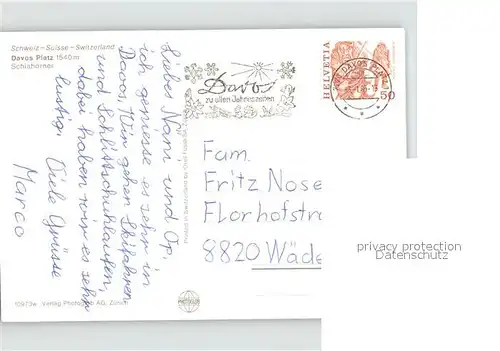 Schweiz – Suisse – Switzerland
Davos Platz 1540 m
Schiahörner
Lieber Nani und Op.
ich geniesse es sehr in
Davos. Wir gehen Skifahren
und Schlittschuhlaufen,
dabei haben wir es sehr
lustig. Viele Grüsse
Marco
Davos
zu allen Jahreszeiten
HELVETIA
50
DAVOS PLATZ
Fam.
Fritz Nose
Florhofstra
8820 Wäde
privacy protection
Datenschutz
10973w Verlag Photoglob AG, Zürich
Printed in Switzerland